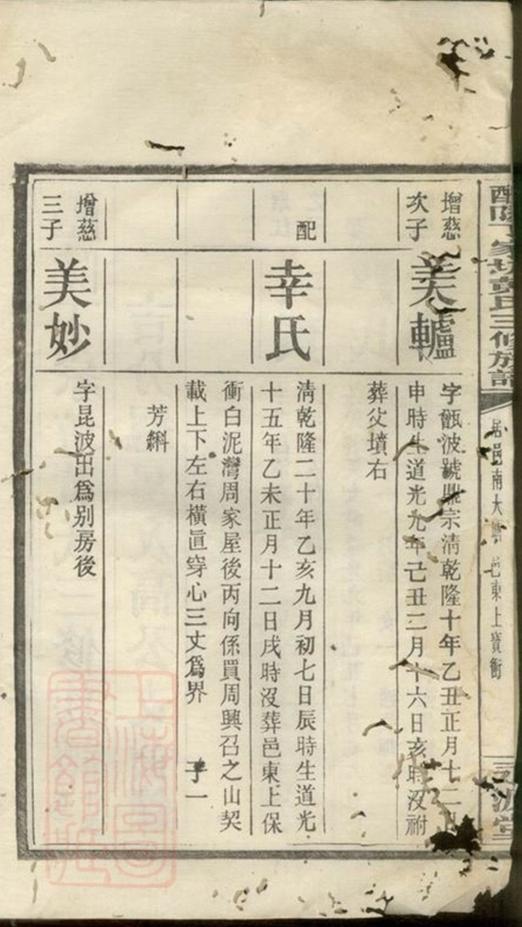 三修族譜
居邑南大
邑東上寶衝
增慈
次子
美轤
字甑波號鼎宗清乾隆十年乙丑正月十二
申時生道光九年己丑二月十六日亥時沒祔
葬父墳右
配
幸氏
清乾隆二十年乙亥九月初七日辰時生道光
十五年乙未正月十二日戌時沒葬邑東上保
衝白泥灣周家屋後丙向係買周興召之山契
載上下左右橫直穿心三丈爲界 子一
芳𦂶
增慈
三子
美妙
字昆波出爲別房後